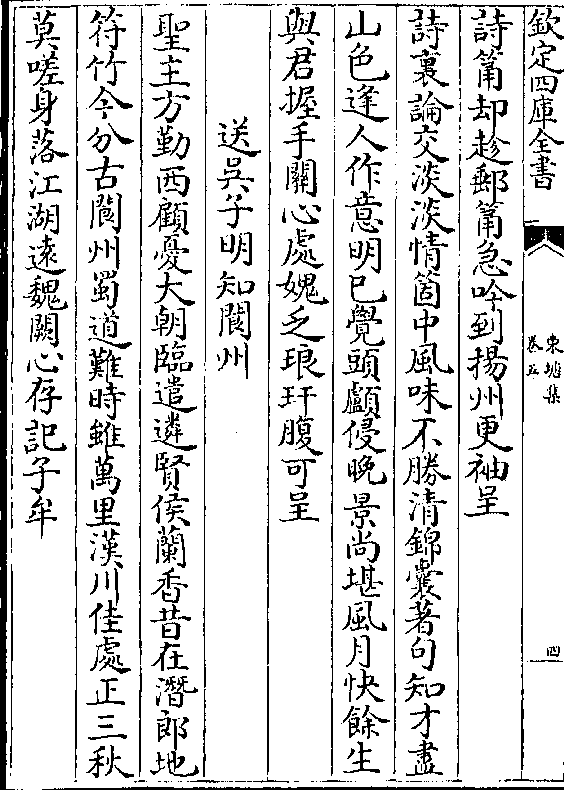 欽定四庫全書
東塘集
卷五
四
詩筩却趁郵筩急吟到揚州更袖呈
詩裏論交淡淡情箇中風味不勝清錦囊著句知才盡
山色逢人作意明已覺頭顱侵晚景尚堪風月快餘生
與君握手關心處媿乏琅玕腹可呈
送吳子明知閬州
聖主方勤西顧憂大朝臨遣遴賢侯蘭香昔在潛郎地
符竹今分古閬州蜀道難時雖萬里漢川佳處正三秋
莫嗟身落江湖遠魏闕心存記子牟